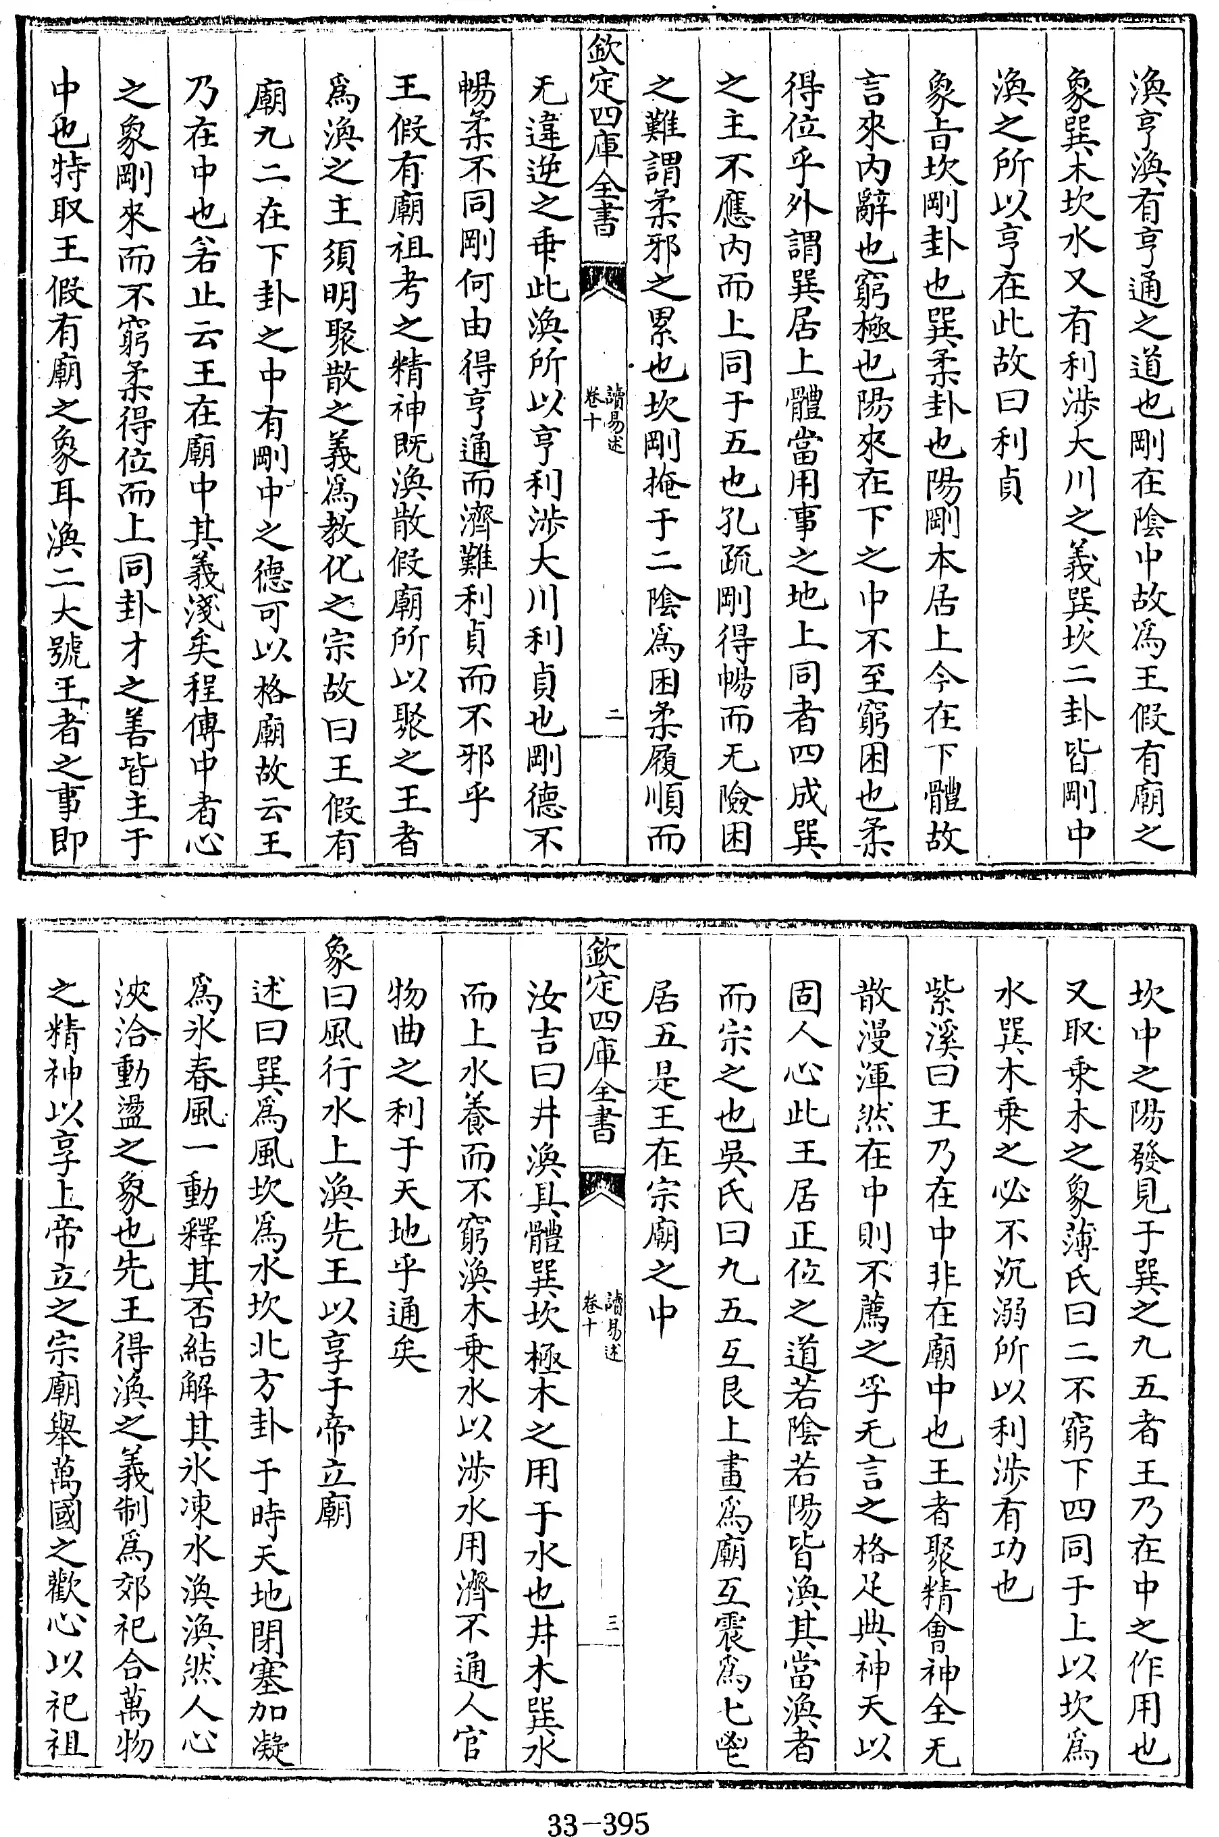 渙亨渙有亨通之道也剛在陰中故為王假有廟之
象巽木坎水又有利涉大川之義巽坎二卦皆剛中
渙之所以亨在此故曰利貞
彖旨坎剛卦也巽柔卦也陽剛本居上今在下體故
言來內辭也窮極也陽來在下之中不至窮困也柔
得位乎外謂巽居上體當用事之地上同者四成巽
之主不應內而上同于五也孔疏剛得暢而无險困
之難謂柔邪之累也坎剛掩于二陰為困柔履順而
欽定四庫全書
讀易述
卷十
二
无違逆之乖此渙所以亨利涉大川利貞也剛德不
暢柔不同剛何由得亨通而濟難利貞而不邪乎
王假有廟祖考之精神既渙散假廟所以聚之王者
為渙之主須明聚散之義為教化之宗故曰王假有
廟九二在下卦之中有剛中之德可以格廟故云王
乃在中也若止云王在廟中其義淺矣程傳中者心
之象剛來而不窮柔得位而上同卦才之善皆主于
中也特取王假有廟之象耳渙二大號王者之事即
坎中之陽發見于巽之九五者王乃在中之作用也
又取乘木之象薄氏曰二不窮下四同于上以坎為
水巽木乘之必不沉溺所以利涉有功也
紫溪曰王乃在中非在廟中也王者聚精會神全无
散漫渾然在中則不薦之孚无言之格足典神天以
固人心此王居正位之道若陰若陽皆渙其當渙者
而宗之也吳氏曰九五互艮上畫為廟互震為七鬯
居五是王在宗廟之中
欽定四庫全書
讀易述
卷十
三
汝吉曰井渙具體巽坎極木之用于水也井木巽水
而上水養而不窮渙木乘水以涉水用濟不通人官
物曲之利于天地乎通矣
象曰風行水上渙先王以享于帝立廟
述曰巽為風坎為水坎北方卦于時天地閉塞加凝
為氷春風一動釋其否結解其氷凍水渙渙然人心
浹洽動盪之象也先王得渙之義制為郊祀合萬物
之精神以享上帝立之宗廟舉萬國之歡心以祀祖
33-395